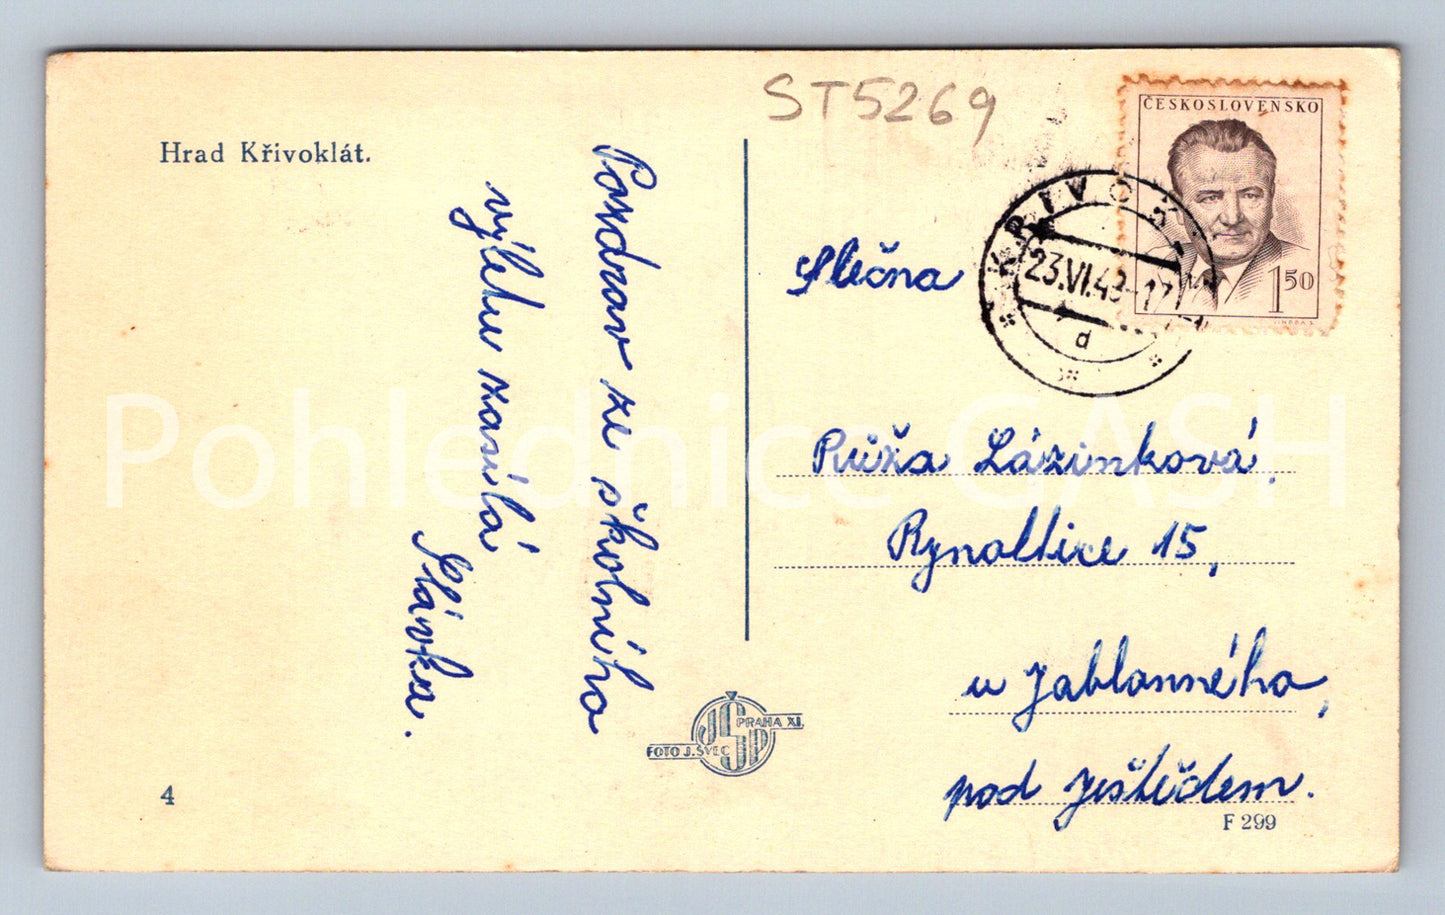 ST5269
Hrad Křivoklát.
Pozdrav ze školního
výletu zasílá
Slávka.
ČESKOSLOVENSKO
1 50
23.VI.49-17
d
Slečna
Růža Lázinková,
Rynoltice 15,
u Jablonného,
pod Ještědem.
FOTO J. ŠVEC
PRAHA XI.
4
F 299
Pohlednice CASH